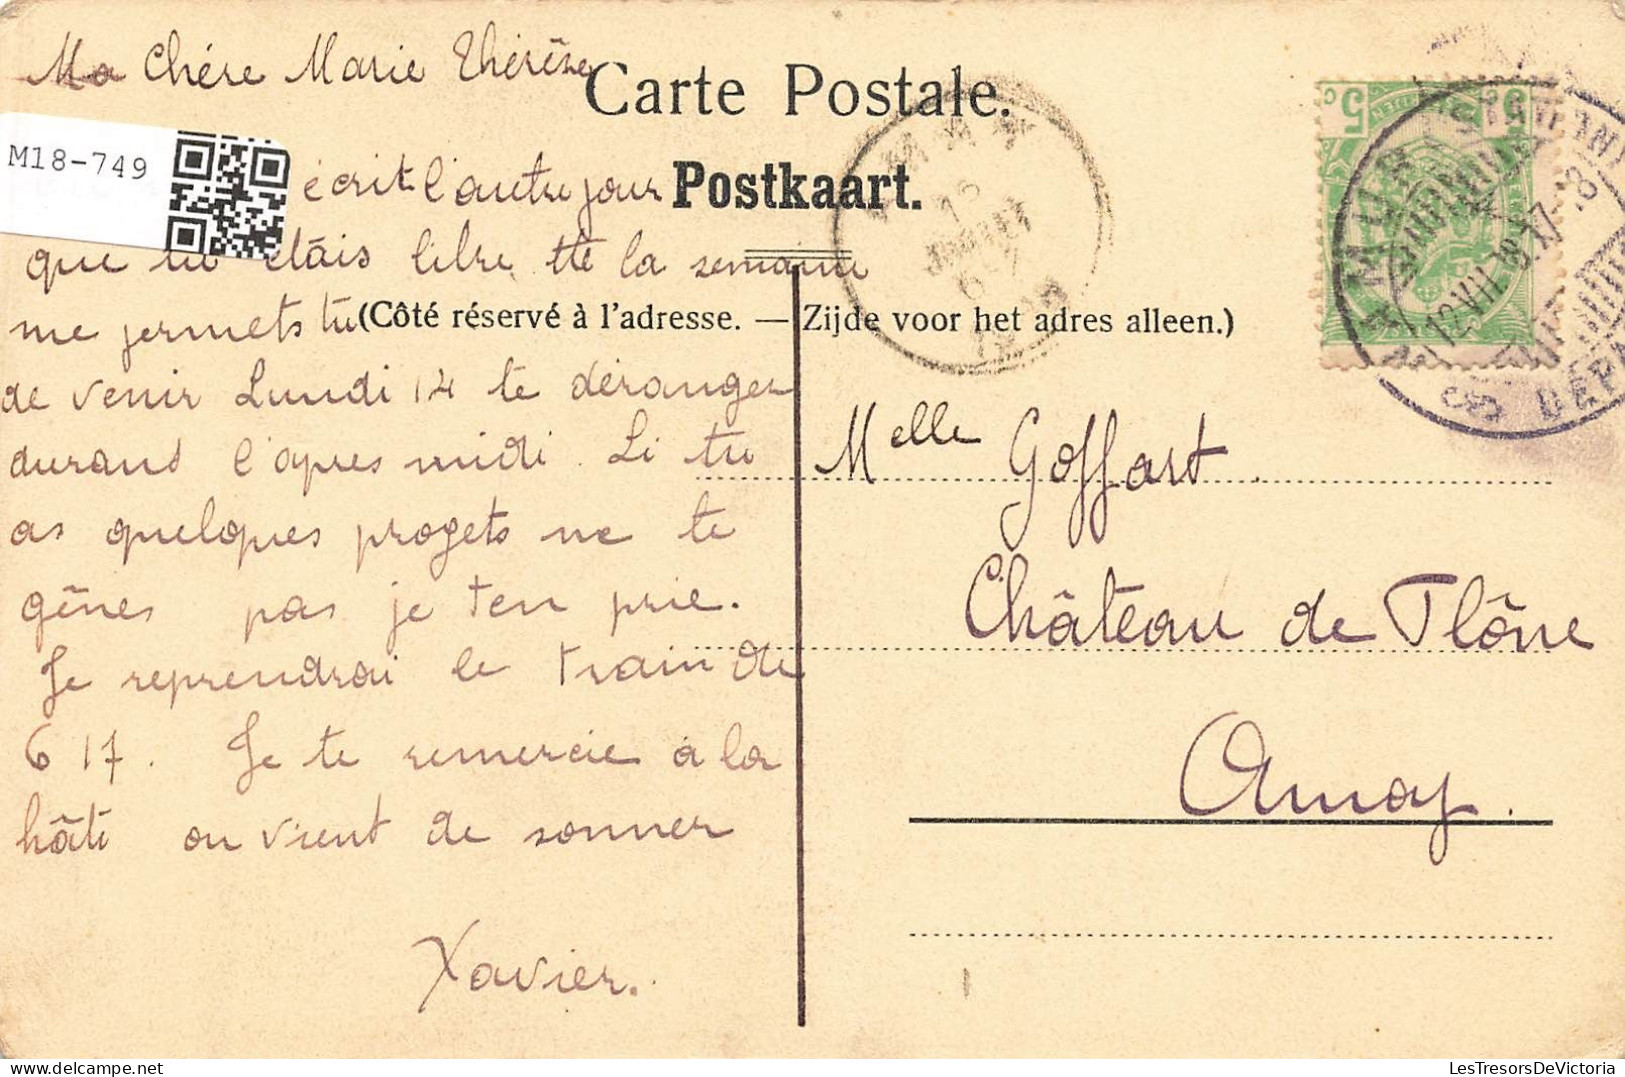 Ma Chére Marie Thérèse
Carte Postale.
M18-749
écrit l'autre jour
Postkaart.
que tu étais libre
la semaine
me permets tu
(Côté réservé à l'adresse. — Zijde voor het adres alleen.)
de venir Lundi 14 te déranger
durant l'apres midi. Si tu
as quelques progets ne te
gênes pas je t'en prie.
Je reprendrai le train de
6 17. Je te remercie à la
hâte on vient de sonner
Xavier.
Melle Goffart
Château de Flône
Amay.
5 c
NAMUR
12 VII
DEPART
LesTresorsDeVictoria